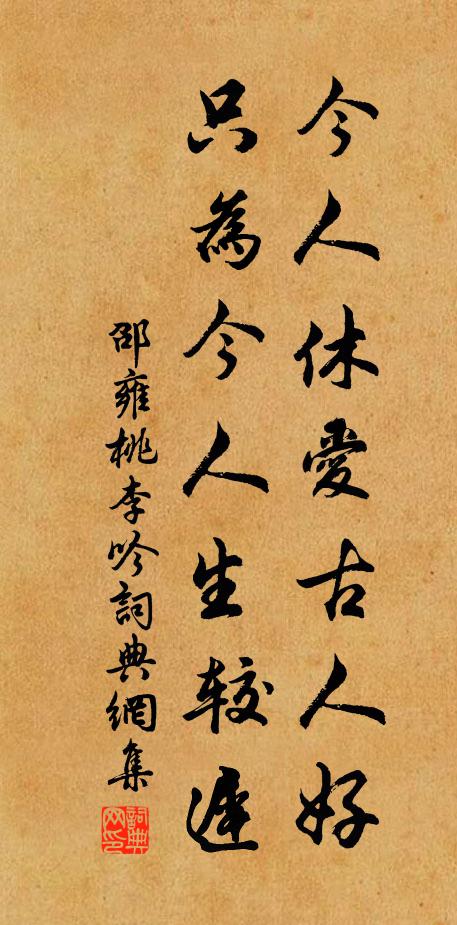 今人休愛古人好
只為今人生較遲
邵雍桃李吟詞典網集
詞典网印